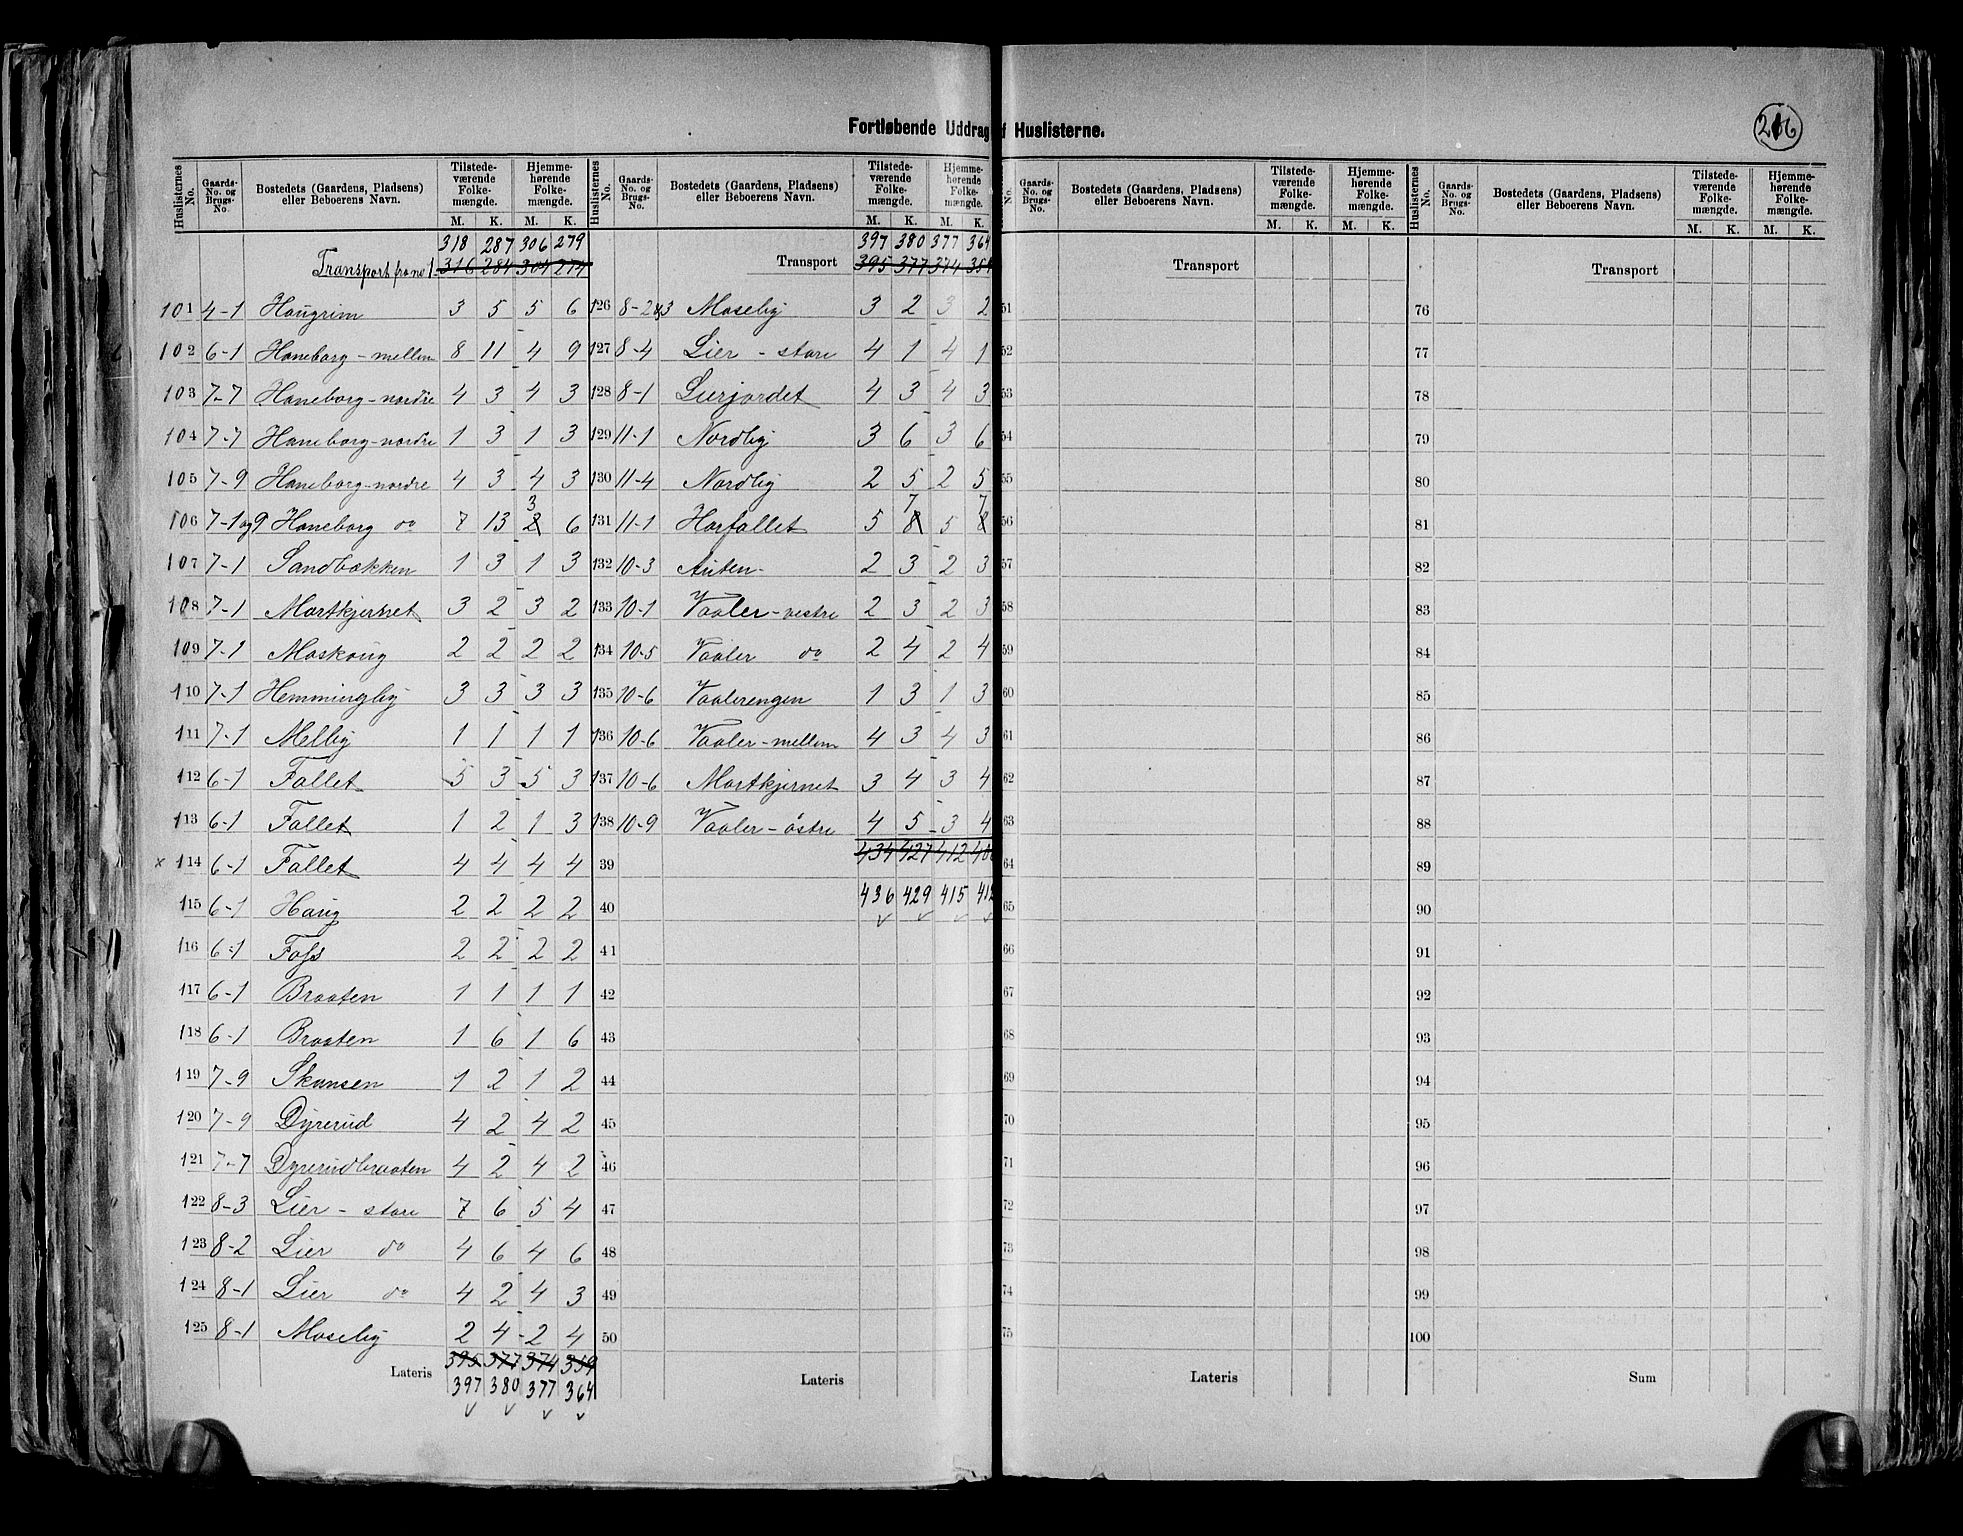 Fortløbende Uddrag af Huslisterne.
216
Huslisternes No. | Gaards-No. og Brugs-No. | Bostedets (Gaardens, Pladsens) eller Beboerens Navn. | Tilstedeværende Folkemængde. M. K. | Hjemmehørende Folkemængde. M. K.
318 287 306 279
Transport 316 284 304 274
101 4-1 Haugrim 3 5 5 6
102 6-1 Haneborg-mellem 8 11 4 9
103 7-7 Haneborg-nordre 4 3 4 3
104 7-7 Haneborg-nordre 1 3 1 3
105 7-9 Haneborg-nordre 4 3 4 3
106 7-1 og 9 Haneborg do 7 13 2 3 6
107 7-1 Sandbækken 1 3 1 3
108 7-1 Mortkjernet 3 2 3 2
109 7-1 Moskoug 2 2 2 2
110 7-1 Hemmingsby 3 3 3 3
111 7-1 Melby 1 1 1 1
112 6-1 Fallet 5 3 5 3
113 6-1 Fallet 1 2 1 3
x 114 6-1 Fallet 4 4 4 4
115 6-1 Haug 2 2 2 2
116 6-1 Foss 2 2 2 2
117 6-1 Braaten 1 1 1 1
118 6-1 Braaten 1 6 1 6
119 7-9 Skansen 1 2 1 2
120 7-9 Dyrerud 4 2 4 2
121 7-7 Dyrerudbraaten 4 2 4 2
122 8-3 Lier - store 7 6 5 4
123 8-2 Lier do 4 6 4 6
124 8-1 Lier do 4 2 4 3
125 8-1 Moseby 2 4 2 4
395 377 374 359
Lateris 397 380 377 364
Huslisternes No. | Gaards-No. og Brugs-No. | Bostedets (Gaardens, Pladsens) eller Beboerens Navn. | Tilstedeværende Folkemængde. M. K. | Hjemmehørende Folkemængde. M. K.
397 380 377 364
Transport 395 377 374 359
126 8-2&3 Moseby 3 2 3 2
127 8-4 Lier - store 4 1 4 1
128 8-1 Lierjordet 4 3 4 3
129 11-1 Nordby 3 6 3 6
130 11-4 Nordby 2 5 2 5
131 11-1 Horfallet 5 8 7 5 8 7
132 10-3 Auten 2 3 2 3
133 10-1 Vaaler-vestre 2 3 2 3
134 10-5 Vaaler do 2 4 2 4
135 10-6 Vaalerengen 1 3 1 3
136 10-6 Vaaler-mellem 4 3 4 3
137 10-6 Mortkjernet 3 4 3 4
138 10-9 Vaaler-östre 4 5 3 4
39 434 427 412
40 436 429 415 412
41
42
43
44
45
46
47
48
49
50
Lateris
No. | Gaards-No. og Brugs-No. | Bostedets (Gaardens, Pladsens) eller Beboerens Navn. | Tilstedeværende Folkemængde. M. K. | Hjemmehørende Folkemængde. M. K.
Transport
51
52
53
54
55
56
57
58
59
60
61
62
63
64
65
66
67
68
69
70
71
72
73
74
75
Lateris
Huslisternes No. | Gaards-No. og Brugs-No. | Bostedets (Gaardens, Pladsens) eller Beboerens Navn. | Tilstedeværende Folkemængde. M. K. | Hjemmehørende Folkemængde. M. K.
Transport
76
77
78
79
80
81
82
83
84
85
86
87
88
89
90
91
92
93
94
95
96
97
98
99
100
Sum